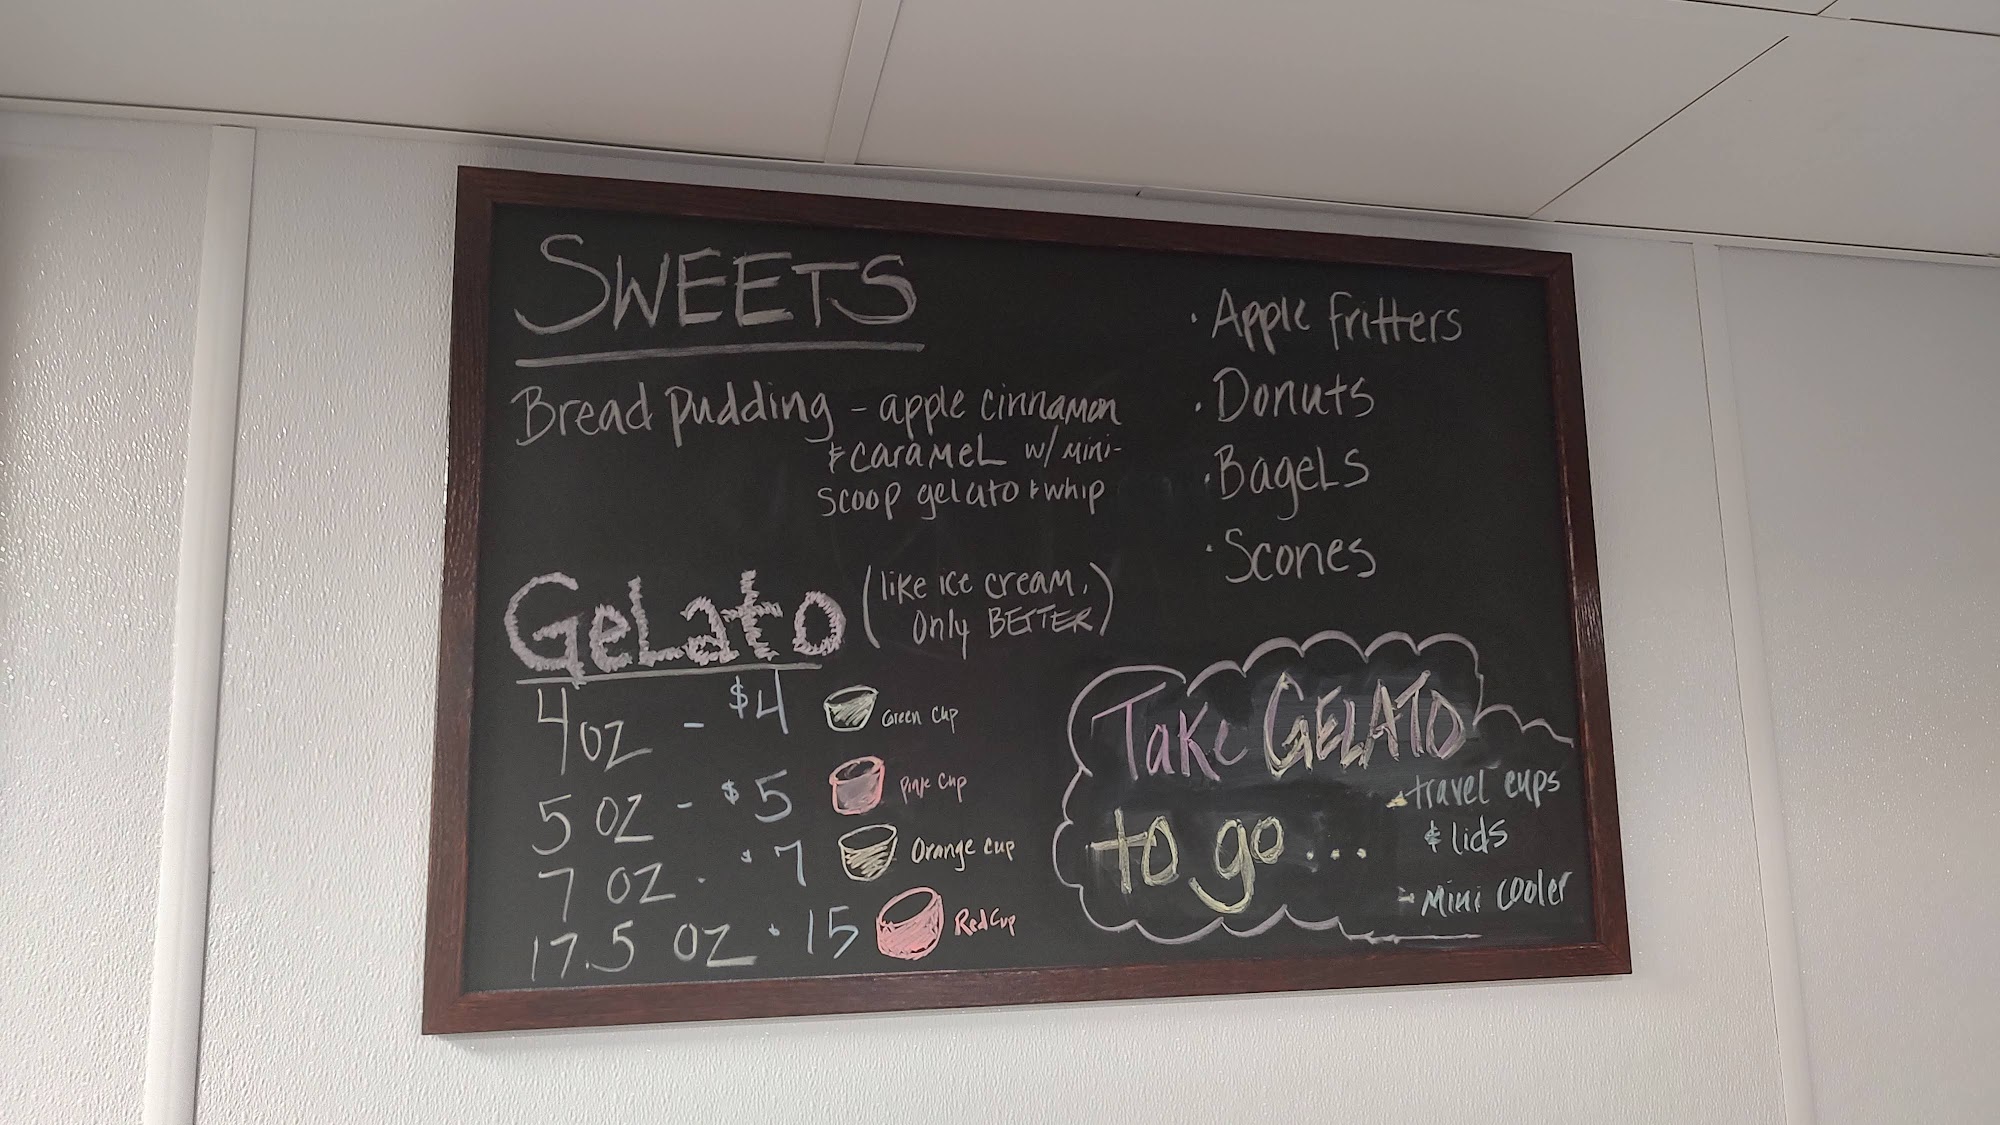 SWEETS
Bread pudding - apple cinnamon
& caramel w/ mini-
scoop gelato & whip
· Apple fritters
· Donuts
· Bagels
· Scones
Gelato (like ice cream,
only BETTER)
4 oz - $4 Green Cup
5 oz - $5 Pink Cup
7 oz - $7 Orange Cup
17.5 oz · 15 Red Cup
Take GELATO
to go...
- travel cups
& lids
- Mini cooler